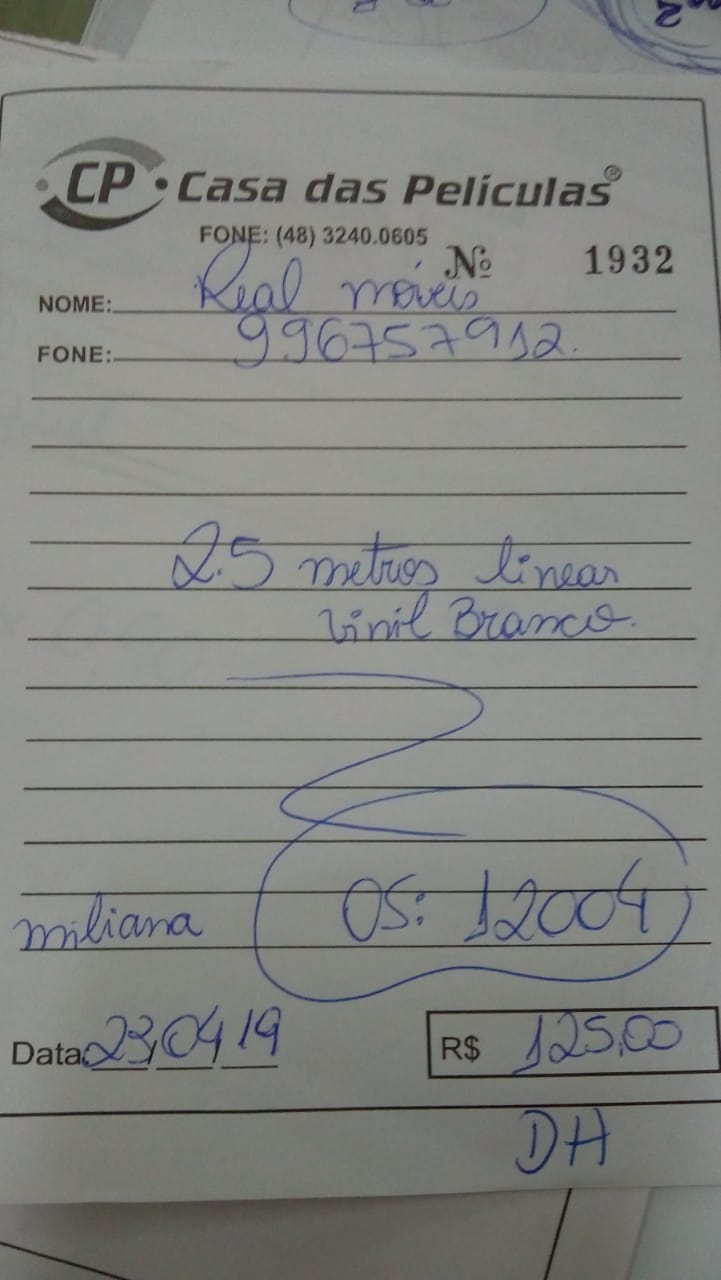 CP • Casa das Películas®
FONE: (48) 3240.0605
Nº 1932
NOME: Real móveis
FONE: 996757912.
2.5 metros linear
Vinil Branco.
OS: 12004
miliana
Data 23/04/19
R$ 125,00
DH